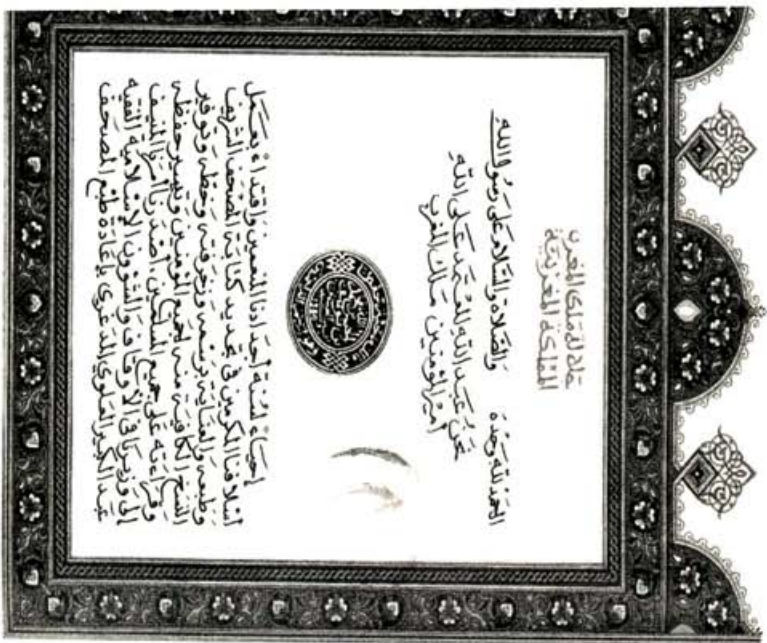 المملكة المغربية
جلالة ملك المغرب
الحمد لله وحده والصلاة والسلام على رسول الله
نحن عبد الله المعتمد على الله
أمير المؤمنين ملك المغرب
إحياء لسنة أجدادنا المنعمين واقتداء بعمل
أسلافنا المكرمين في تجديد كتابة المصحف الشريف
وطبعه والعناية برسمه وزخرفته وخطه وتوفير
النسخ الكافية منه لجميع المؤمنين وتيسير حفظه
وقراءته على جميع المسلمين أصدرنا أمرنا المنيف
إلى وزيرنا في الأوقاف والشؤون الإسلامية الفقيه
عبد الكبير العلوي المدغري بإعادة طبع المصحف